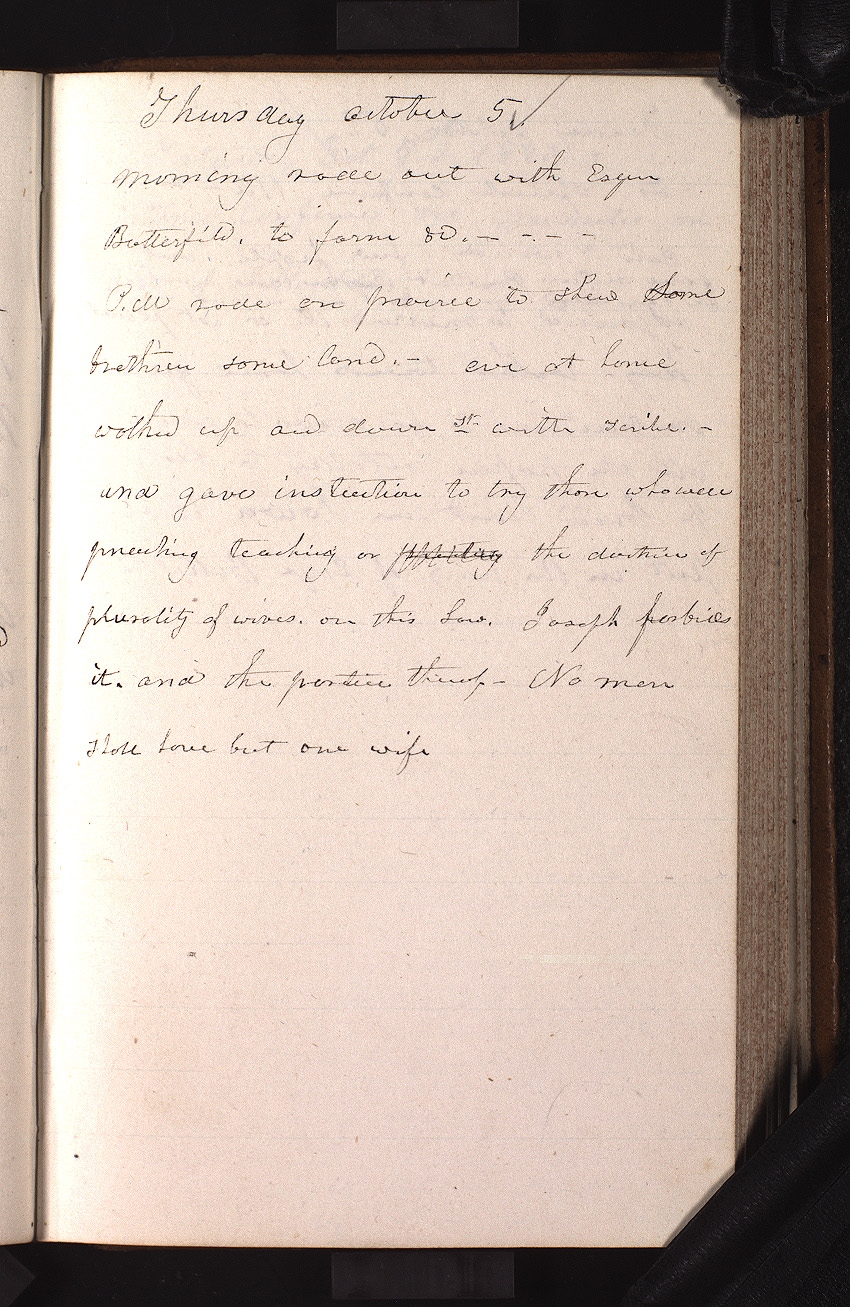 Thursday october 5
morning rode out with Esqu
Butterfild. to farm &c. — - — -
P.M rode on prairie to shew Some
brethren some land. — eve at home
walked up and down st. with scribe. —
and gave instruction to try those who were
preaching teaching or the doctrine of
plurality of wives. on this Law. Joseph forbids
it. and the practice thereof — No man
shall have but one wife